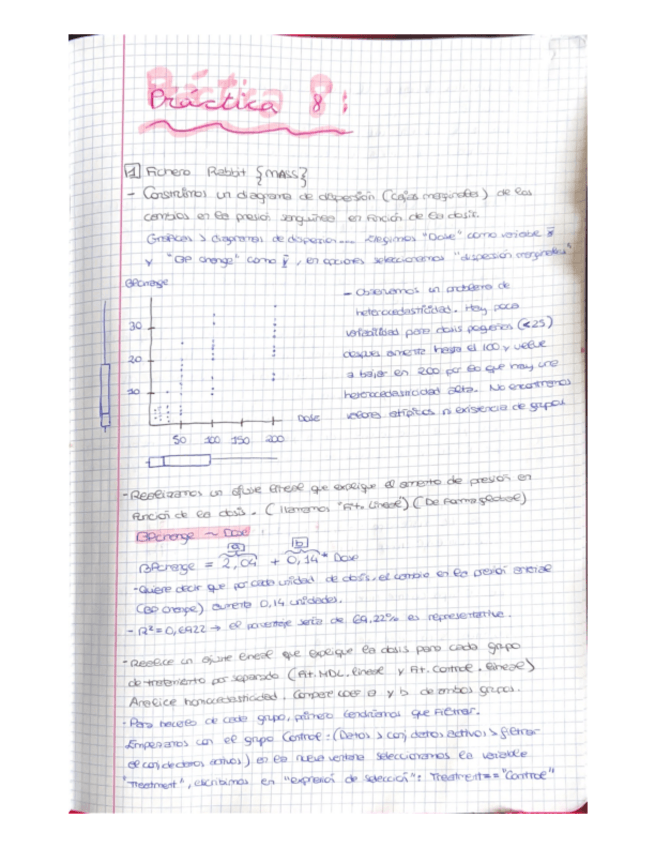 Práctica 8:
1 Fichero Rabbit {MASS}
- Construimos un diagrama de dispersión (cajas marginales) de los
cambios en la presión sanguínea en función de la dosis.
Gráficas > diagrama de dispersión... elegimos "Dose" como variable x
y "BP change" como y, en opciones seleccionamos "dispersión marginales"
BPchange
30
20
10
Dose
50 100 150 200
- Observamos un problema de
heterocedasticidad. Hay poca
variabilidad para dosis pequeñas (<25)
después aumenta hasta el 100 y vuelve
a bajar en 200 por lo que hay una
heterocedasticidad alta. No encontramos
valores atípicos ni existencia de grupos
- Realizamos un ajuste lineal que explique el aumento de presión en
función de la dosis. (llamemos "Fit. lineal") (De forma global)
BPchange ~ Dose
a b
BPchange = 2,04 + 0,14 * Dose
- Quiere decir que por cada unidad de dosis, el cambio en la presión
(BP change) aumenta 0,14 unidades.
- R²=0,6922 → el porcentaje sería de 69,22% es representativo.
- Realice un ajuste lineal que explique la dosis para cada grupo
de tratamiento por separado (Fit.MDL.lineal y Fit.Control.lineal)
Analice homocedasticidad. Compare coef a y b de ambos grupos.
- Para hacerlo de cada grupo, primero tendríamos que filtrar.
Empezamos con el grupo Control: (Datos > conj datos activos > filtrar
el conj de datos activos) en la nueva ventana seleccionamos la variable
"Treatment", escribimos en "expresión de selección": Treatment=="Control"